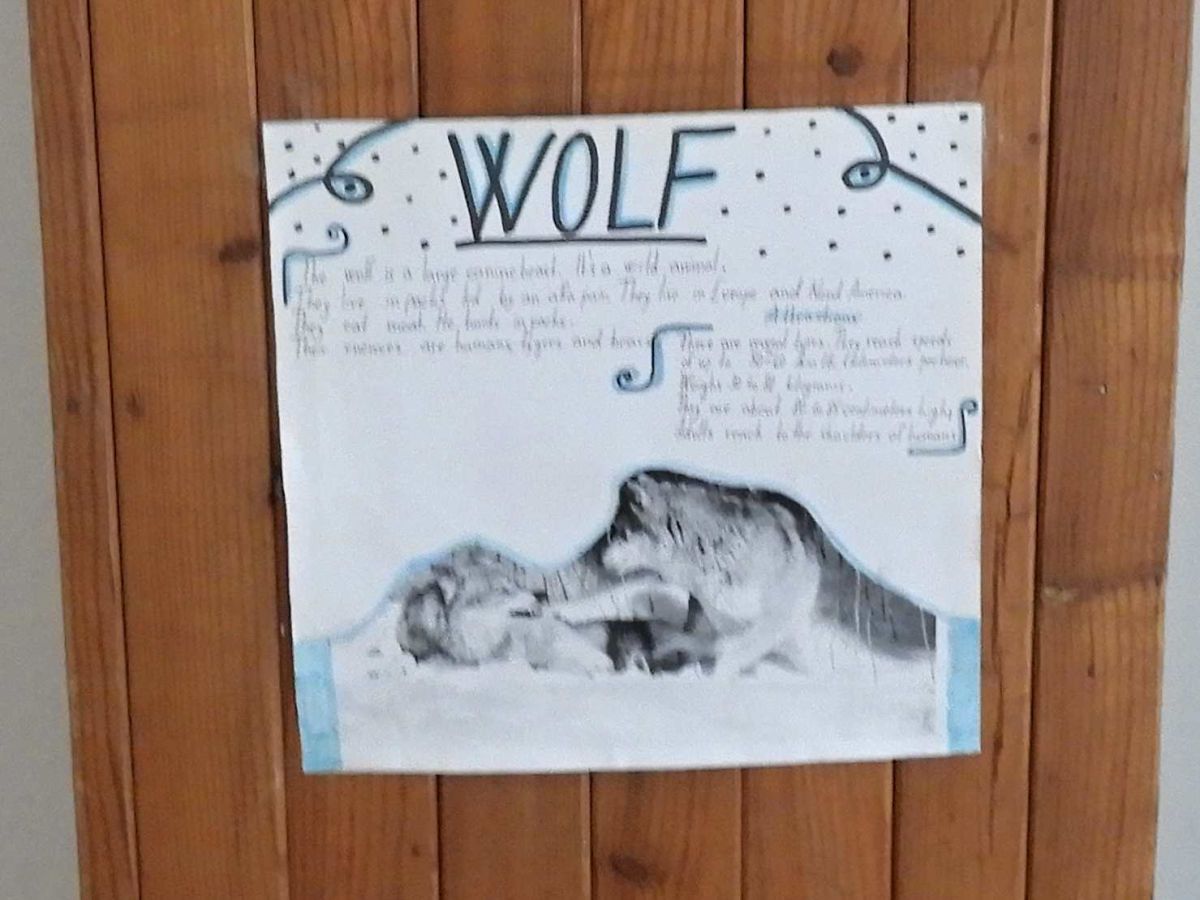 WOLF
The wolf is a large canine beast. It's a wild animal.
They live in packs led by an alfa pair. They live in Europe and Nord America.
They eat meat. He hunts in packs.
Their enemies are humans, tigers and bears
There are several types. They reach speeds
of up to kilometers per hour.
Weighs to kilograms.
They are about to centimeters high,
Adults reach to the shoulders of humans